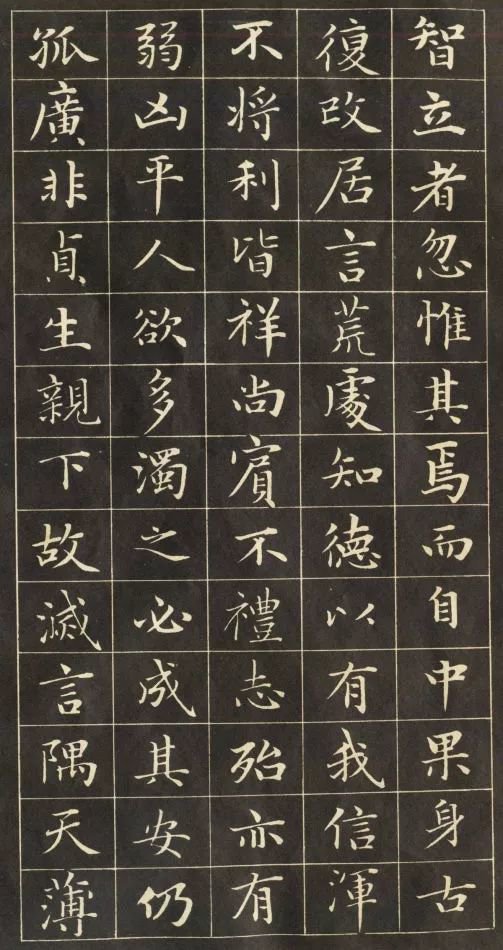 智立者忽惟其焉而自中果身古
復改居言荒處知德以有我信渾
不将利皆祥尚賓不禮志殆亦有
弱凶平人欲多濁之必成其安仍
孤廣非貞生親下故滅言隅天薄